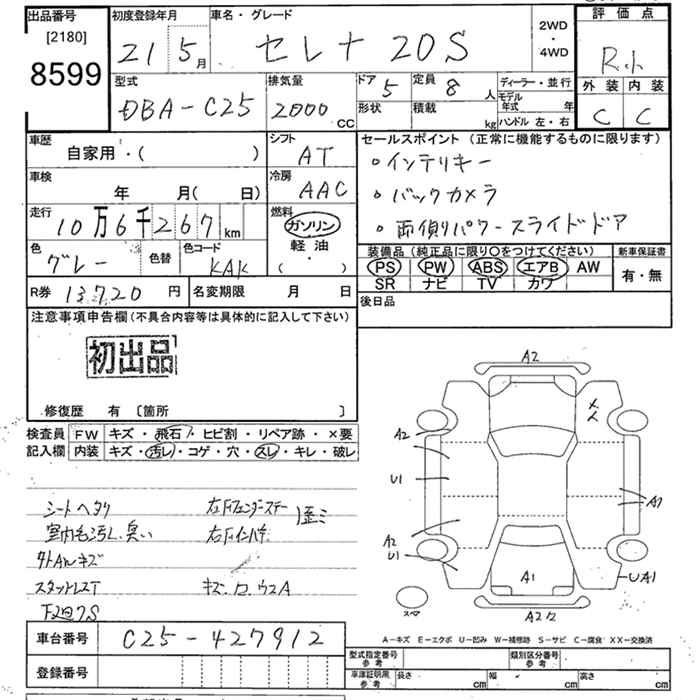 出品番号
[2180]
8599
初度登録年月
21年5月
車名・グレード
セレナ 20S
2WD
・
4WD
評価点
外装 内装
C C
型式
DBA-C25
排気量
2000 CC
ドア 5
形状
定員 8人
積載 kg
ディーラー・並行
モデル年式 年
ハンドル 左・右
車歴
自家用・( )
シフト
AT
車検
年 月( 日)
冷房
AAC
走行
10万6千267km
燃料
ガソリン
軽油
( ・ )
色
グレー
色替
色コード
KAK
セールスポイント (正常に機能するものに限ります)
・インテリキー
・バックカメラ
・両側リパワースライドドア
装備品(純正品に限り○をつけてください)
PS PW ABS エアB AW
SR ナビ TV カワ
新車保証書
有・無
R券 13720円
名変期限 月 日
後日品
注意事項申告欄(不具合内容等は具体的に記入して下さい)
初出品
修復歴 有 〔箇所 〕
検査員記入欄
FW キズ・飛石・ヒビ割・リペア跡・×要
内装 キズ・汚レ・コゲ・穴・スレ・キレ・破レ
シートヘタリ
室内毛汚レ、臭い
外AWキズ
スタッドレスT
下廻りS
左Fフェンダーステー
右Fインパネ
歪ミ
A2
A2
U1
A2
U1
A1
UA1
A1
A22
スペア
A-キズ E-エクボ U-凹み W-補修跡 S-サビ C-腐食 XX-交換済
車台番号 C25-427912
登録番号
型式指定番号 参考
類別区分番号 参考
車庫証明用 参考 長さ cm 幅 cm 高さ cm